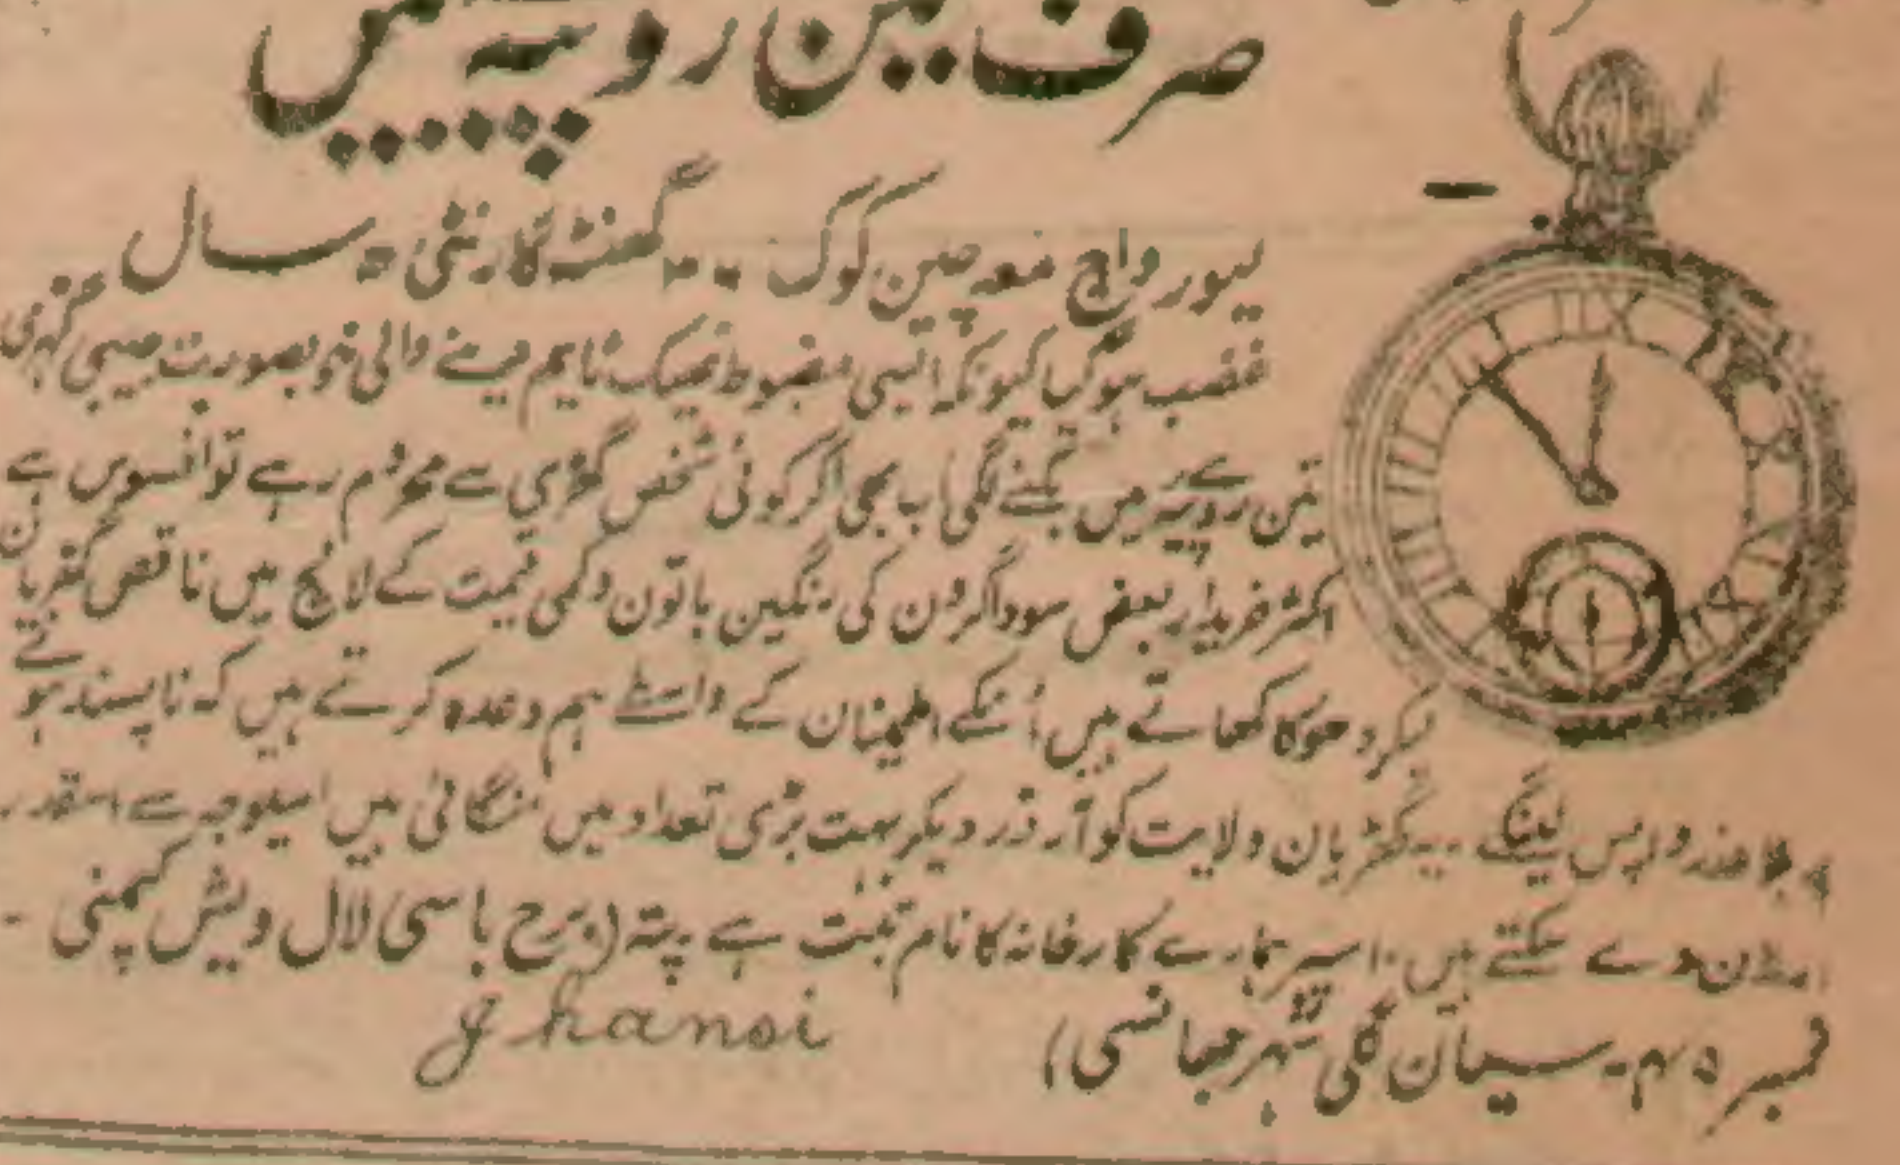 صرف تین روپیہ میں
لیور واچ معہ چین کوک گھنٹہ گارنٹی ۵ سال
غضب ہوگیا کیونکہ ایسی مضبوط ٹھیک ٹایم دینے والی خوبصورت جیبی گھڑی
تین روپیہ میں بکنے لگی اب بھی اگر کوئی شخص گھڑی سے محروم رہے توافسوس ہے
اکثر خریدار بعض سوداگرون کی رنگین باتون و کمی قیمت کے لالچ میں ناقص گھڑیان
لیکر دھوکا کھاتے ہیں اُنکے اطمینان کے واسطے ہم وعدہ کرتے ہیں کہ ناپسند ہونے
پر بلا عذر واپس لینگے گھڑیان ولایت کو آرڈر دیکر بہت بڑی تعداد میں منگائی ہیں اسیوجہ سے اسقدر
ارزان دے سکتے ہیں۔ اسپر ہمارے کارخانہ کا نام ثبت ہے پتہ باسی لال ویش کمپنی -
نمبر ۴۵ گلی شہر جھانسی)
Jhansi